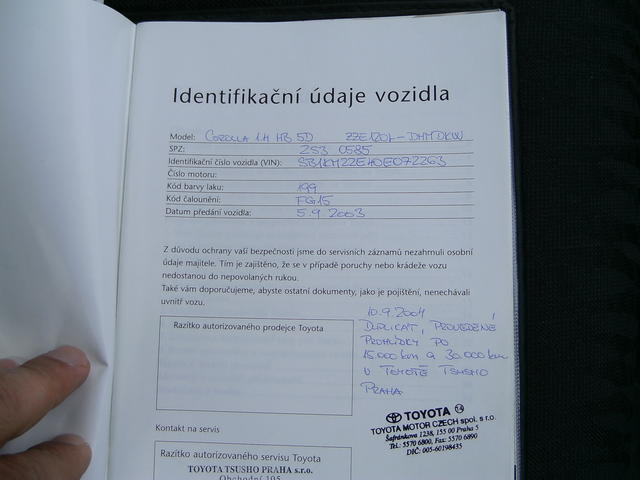 Identifikační údaje vozidla
Model: COROLLA 1.4 HB 5D ZZE120L-DHMDKW
SPZ: 2S3 0585
Identifikační číslo vozidla (VIN): SB1KM22E40E072263
Číslo motoru:
Kód barvy laku: 199
Kód čalounění: FG15
Datum předání vozidla: 5.9 2003
Z důvodu ochrany vaší bezpečnosti jsme do servisních záznamů nezahrnuli osobní
údaje majitele. Tím je zajištěno, že se v případě poruchy nebo krádeže vozu
nedostanou do nepovolaných rukou.
Také vám doporučujeme, abyste ostatní dokumenty, jako je pojištění, nenechávali
uvnitř vozu.
Razítko autorizovaného prodejce Toyota
10.9.2004
DUPLICAT, PROVEDENÉ
PROHLÍDKY PO
15.000 km a 30.000 km
U TOYOTĚ TSUSHO
PRAHA
TOYOTA 14
TOYOTA MOTOR CZECH spol. s r.o.
Šafránkova 1238, 155 00 Praha 5
Tel.: 5570 6800, Fax: 5570 6890
DIČ: 005-60198435
Kontakt na servis
Razítko autorizovaného servisu Toyota
TOYOTA TSUSHO PRAHA s.r.o.
Obchodní 105